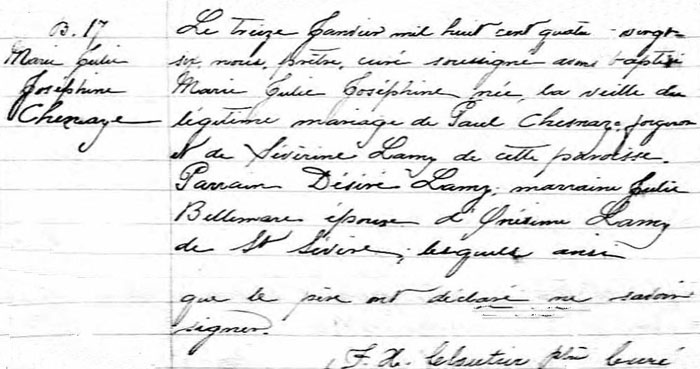 B. 17
Marie Julie
Joséphine
Chenaye
Le treize Janvier mil huit cent quatre-vingt-
six, nous, prêtre, curé soussigné avons baptisé
Marie Julie Joséphine née la veille du
légitime mariage de Paul Chesnaye forgeron
et de Séverine Lamy de cette paroisse.
Parrain Désiré Lamy, marraine Julie
Bellemare épouse d'Onésime Lamy
de St Sévère, lesquels ainsi
que le père ont déclaré ne savoir
signer.
F. X. ptre Curé